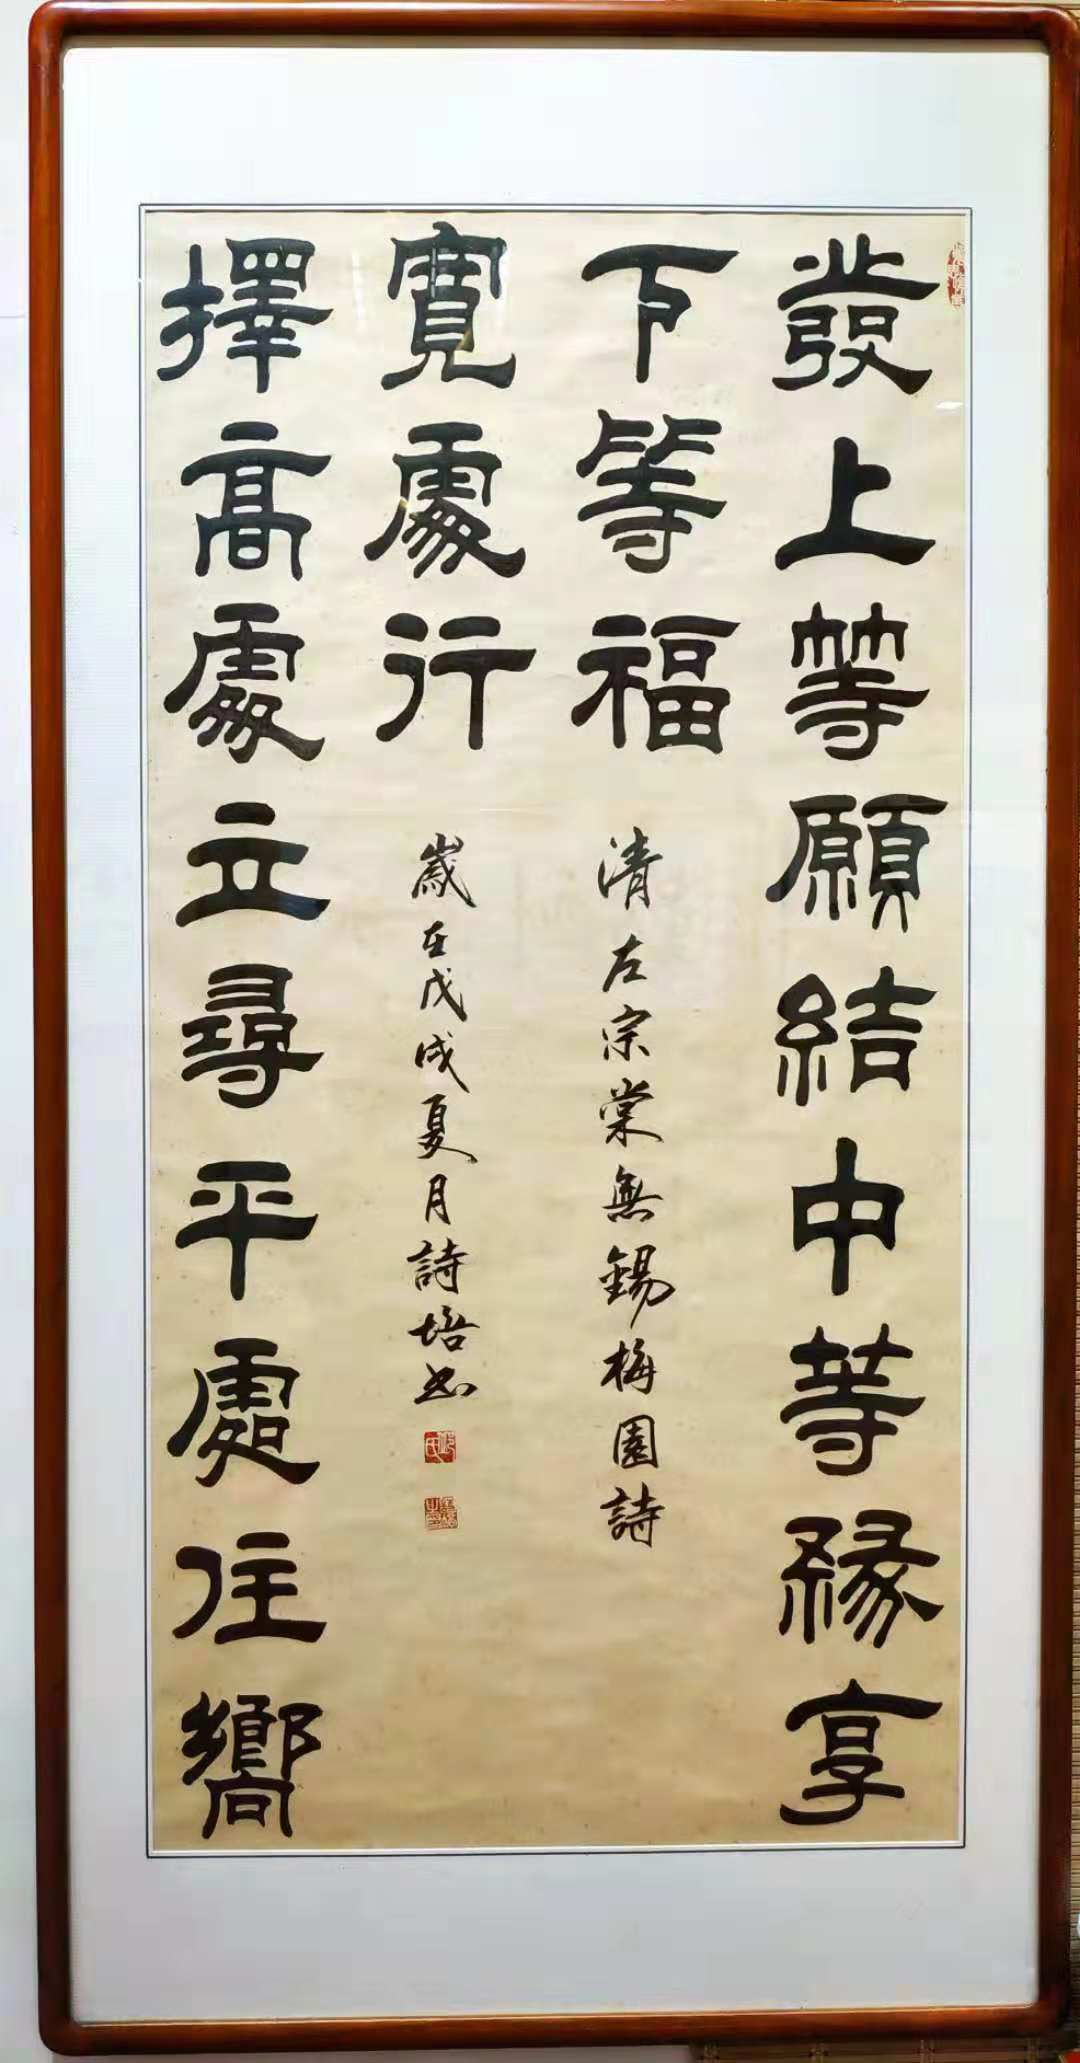 發上等願結中等緣享
下等福
清左宗棠無錫梅園詩
擇高處立尋平處住嚮
寬處行
歲在戊戌夏月詩培書